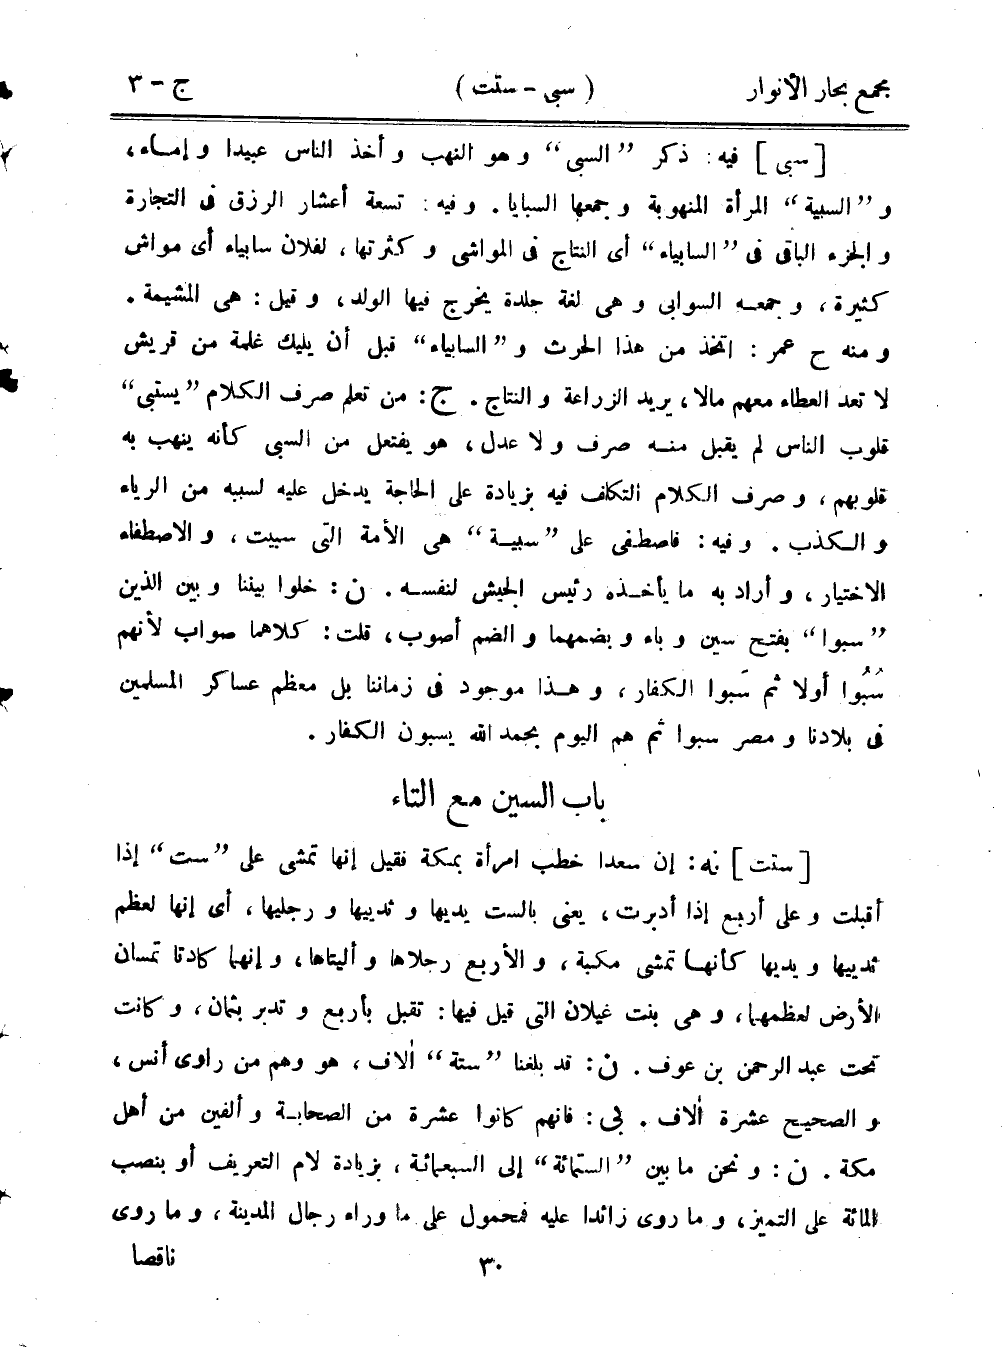 مجمع بحار الأنوار ( سبى - ستت ) ج - ٣
[ سبى ] فيه : ذكر ”السبى“ و هو النهب و أخذ الناس عبيدا و إمـاء،
و ”السبية“ المرأة المنهوبة و جمعها السبايا . و فيه : تسعة أعشار الرزق فى التجارة
و الجزء الباقى فى ”السابياء“ أى النتاج فى المواشى و كثرتها ، لفلان سابياء أى مواش
كثيرة ، و جمعـه السوابى و هى لغة جلدة يخرج فيها الولد ، و قيل : هى المشيمة .
و منه ح عمر : اتخذ من هذا الحرث و ”السابياء“ قبل أن يليك غلمة من قريش
لا تعد العطاء معهم مالا ، يريد الزراعة و النتاج . ج : من تعلم صرف الكلام ”يستبى“
قلوب الناس لم يقبل منـه صرف و لا عدل ، هو يفتعل من السبى كأنه ينهب به
قلوبهم ، و صرف الكلام التكلف فيه بزيادة على الحاجة يدخل عليه لسببه من الرياء
و الـكذب . و فيه : فاصطفى على ”سبيـة“ هى الأمة التى سبيت ، و الاصطفاء
الاختيار ، و أراد به ما يأخـذه رئيس الجيش لنفسـه . ن : خلوا بيننا و بين الذين
”سبوا“ بفتح سين و باء و بضمهما و الضم أصوب ، قلت : كلاهما صواب لأنهم
سُبُوا أولا ثم سَبوا الكفار ، و هـذا موجود فى زماننا بل معظم عساكر المسلمين
فى بلادنا و مصر سبوا ثم هم اليوم بحمد الله يسبون الكفار .
باب السين مع التاء
[ ستت ] نه : إن سعدا خطب امرأة بمكة فقيل إنها تمشى على ”ست“ إذا
أقبلت و على أربع إذا أدبرت ، يعنى بالست يديها و ثدييها و رجليها ، أى إنها لعظم
ثدييها و يديها كأنهـا تمشى مكبة ، و الأربع رجلاها و أليتاها ، و إنهما كادتا تمسان
الأرض لعظمهما ، و هى بنت غيلان التى قيل فيها : تقبل بأربع و تدبر بثمان ، و كانت
تحت عبد الرحمن بن عوف . ن : قد بلغنا ”ستة“ ألاف ، هو وهم من راوى أنس ،
و الصحيح عشرة ألاف . فى : فانهم كانوا عشرة من الصحابـة و ألفين من أهل
مكة . ن : و نحن ما بين ”الستمائة“ إلى السبعمائة ، بزيادة لام التعريف أو بنصب
المائة على التميز ، و ما روى زائدا عليه فمحمول على ما وراء رجال المدينة ، و ما روى
٣٠ ناقصا